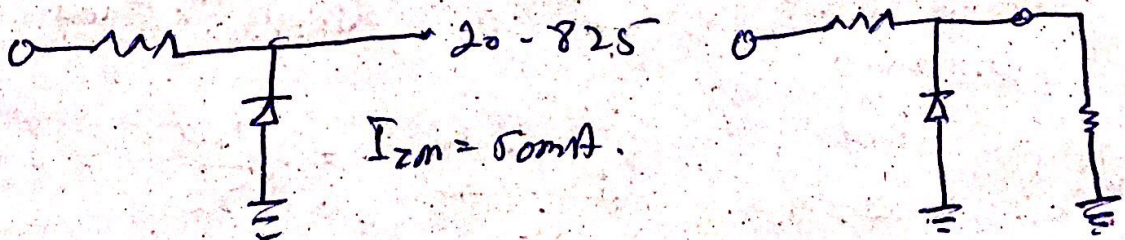 20 - 825
I_ZM = 50mA.